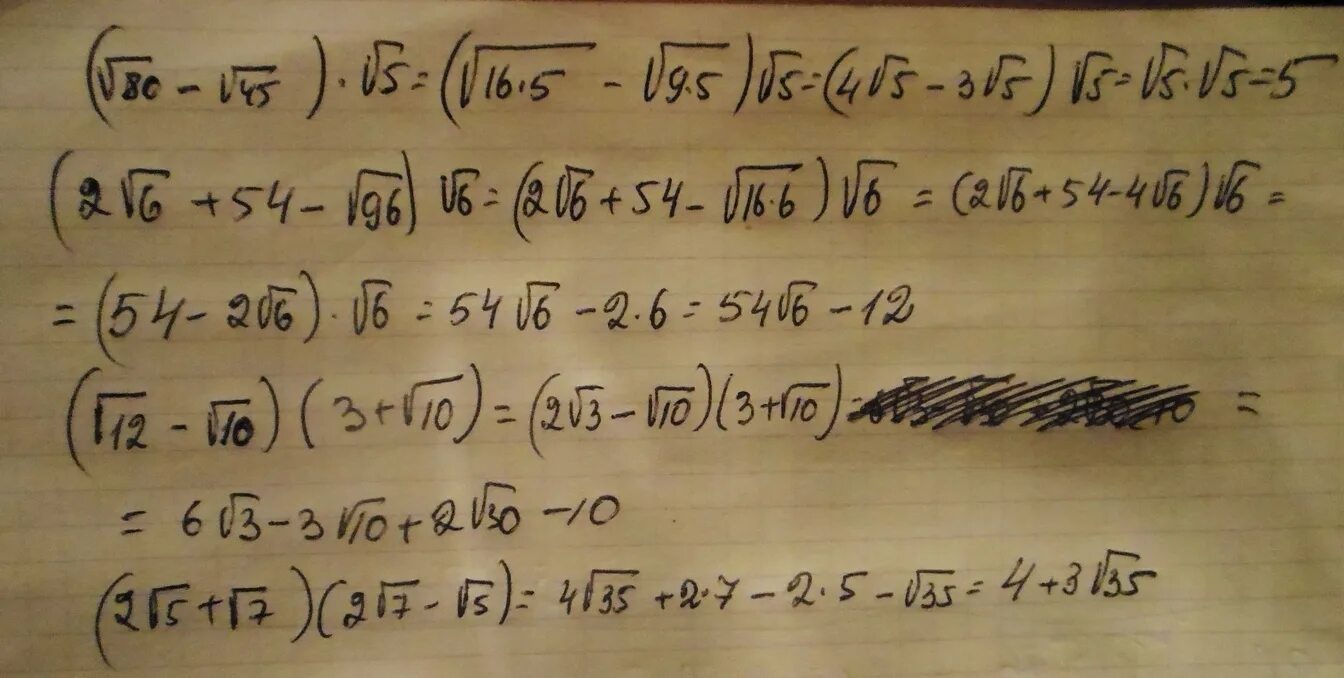 (√80 − √45) · √5 = (√16·5 − √9·5)√5 = (4√5 − 3√5) √5 = √5·√5 = 5
(2√6 + 54 − √96) √6 = (2√6 + 54 − √16·6)√6 = (2√6 + 54 − 4√6)√6 =
= (54 − 2√6) · √6 = 54√6 − 2·6 = 54√6 − 12
(√12 − √10)(3 + √10) = (2√3 − √10)(3 + √10) =
= 6√3 − 3√10 + 2√30 − 10
(2√5 + √7)(2√7 − √5) = 4√35 + 2·7 − 2·5 − √35 = 4 + 3√35